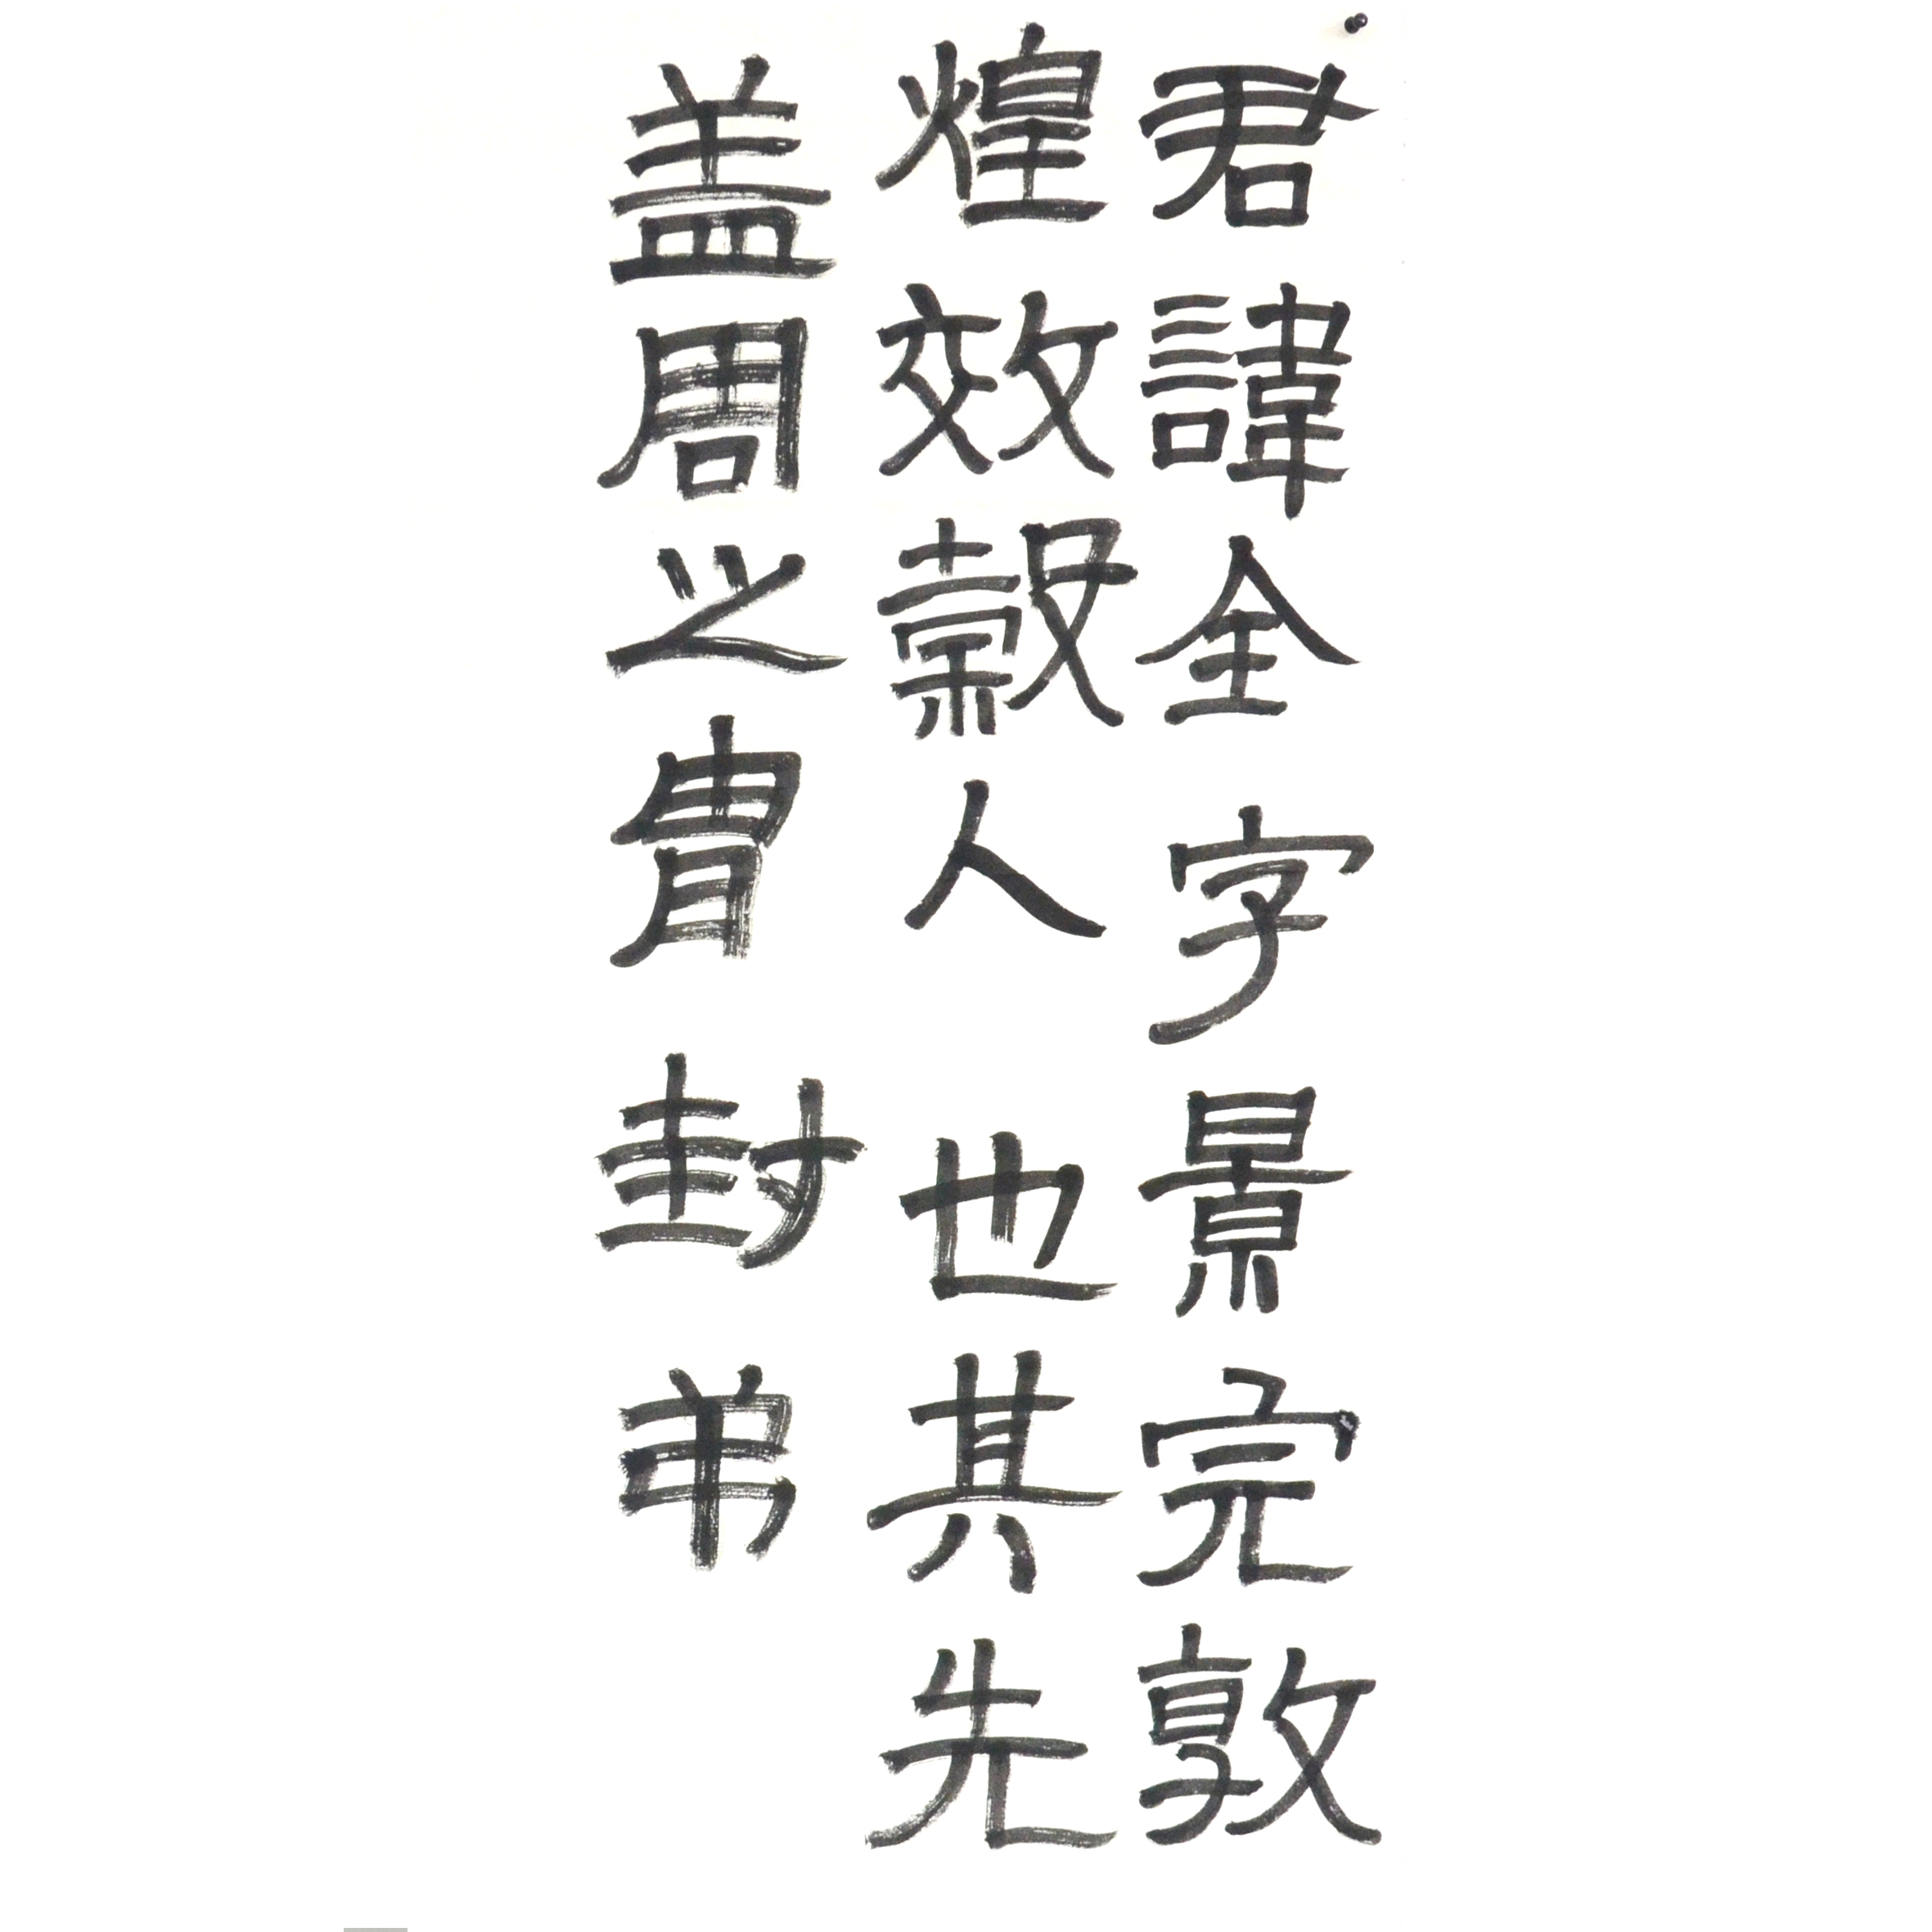 君諱全字景完敦
煌效穀人也其先
盖周之胄封弟